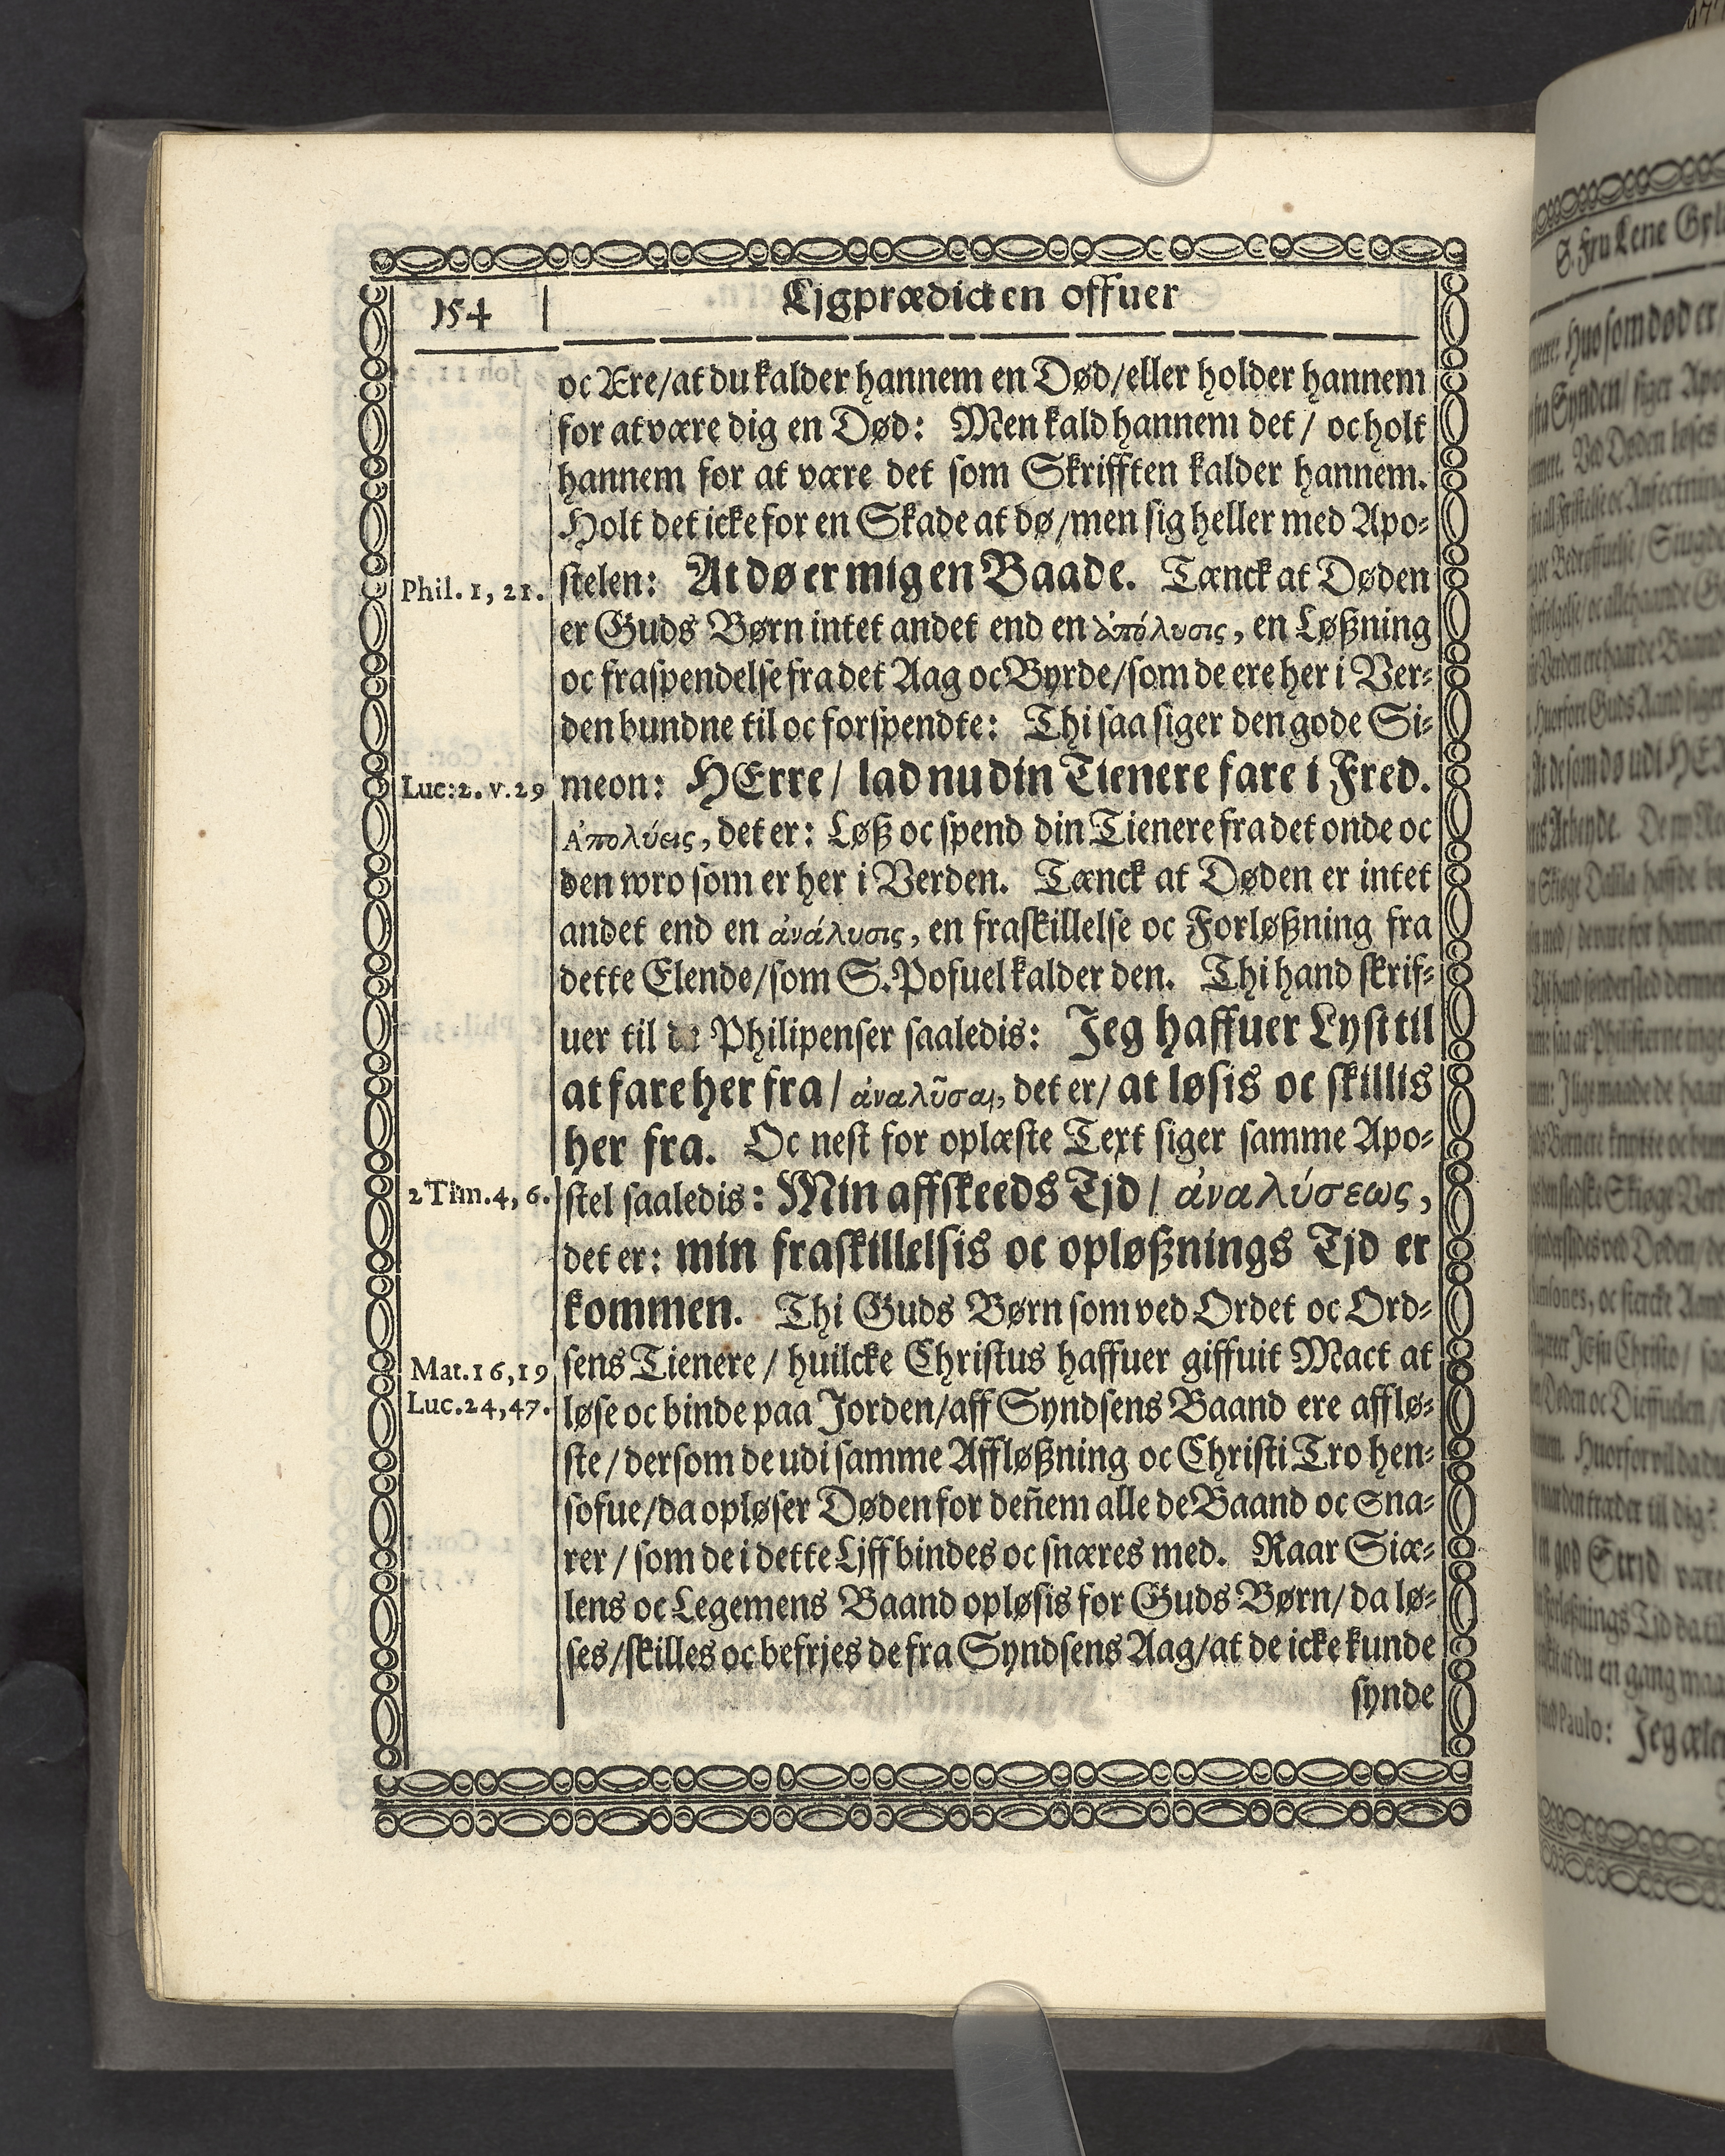 154
Ljgprædicken offuer
oc Ære/at du kalder hannem en Død/eller holder hannem
for at være dig en Død: Men kald hannem det/ oc holt
hannem for at være det som Skrifften kalder hannem.
Holt det icke for en Skade at dø/men sig heller med Apo⸗
Phil. 1, 21. stelen: At dø er mig en Baade. Tænck at Døden
er Guds Børn intet andet end en ἀπόλυσις, en Løßning
oc fraspendelse fra det Aag oc Byrde/som de ere her i Ver⸗
den bundne til oc forspendte: Thi saa siger den gode Si⸗
Luc:2. v.29 meon: HErre/ lad nu din Tienere fare i Fred.
Ἀπολύεις, det er: Løß oc spend din Tienere fra det onde oc
den wro som er her i Verden. Tænck at Døden er intet
andet end en ἀνάλυσις, en fraskillelse oc Forløßning fra
dette Elende/som S. Pofuel kalder den. Thi hand skrif⸗
uer til de Philipenser saaledis: Jeg haffuer Lyst til
at fare her fra/ ἀναλῦσαι, det er/ at løsis oc skillis
her fra. Oc nest for oplæste Text siger samme Apo⸗
2 Tim.4, 6. stel saaledis: Min affskeeds Tjd/ ἀναλύσεως,
det er: min fraskillelsis oc opløßnings Tjd er
kommen. Thi Guds Børn som ved Ordet oc Ord⸗
Mat.16,19 sens Tienere/ huilcke Christus haffuer giffuit Mact at
Luc.24,47. løse oc binde paa Jorden/aff Syndsens Baand ere afflø⸗
ste/dersom de udi samme Affløßning oc Christi Tro hen⸗
sofue/da opløser Døden for deñem alle de Baand oc Sna⸗
rer/ som de i dette Ljff bindes oc snæres med. Naar Siæ⸗
lens oc Legemens Baand opløsis for Guds Børn/da lø⸗
ses/skilles oc befrjes de fra Syndsens Aag/at de icke kunde
synde